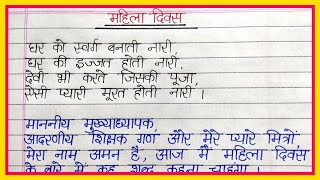 महिला दिवस
घर को स्वर्ग बनाती नारी,
घर की इज्जत होती नारी,
देवी भी करते जिसकी पूजा,
ऐसी प्यारी मूरत होती नारी ।
माननीय मुख्याध्यापक,
आदरणीय शिक्षक गण और मेरे प्यारे मित्रों,
मेरा नाम अमन है, आज मैं महिला दिवस
के बारे में कुछ शब्द कहना चाहूँगा ।